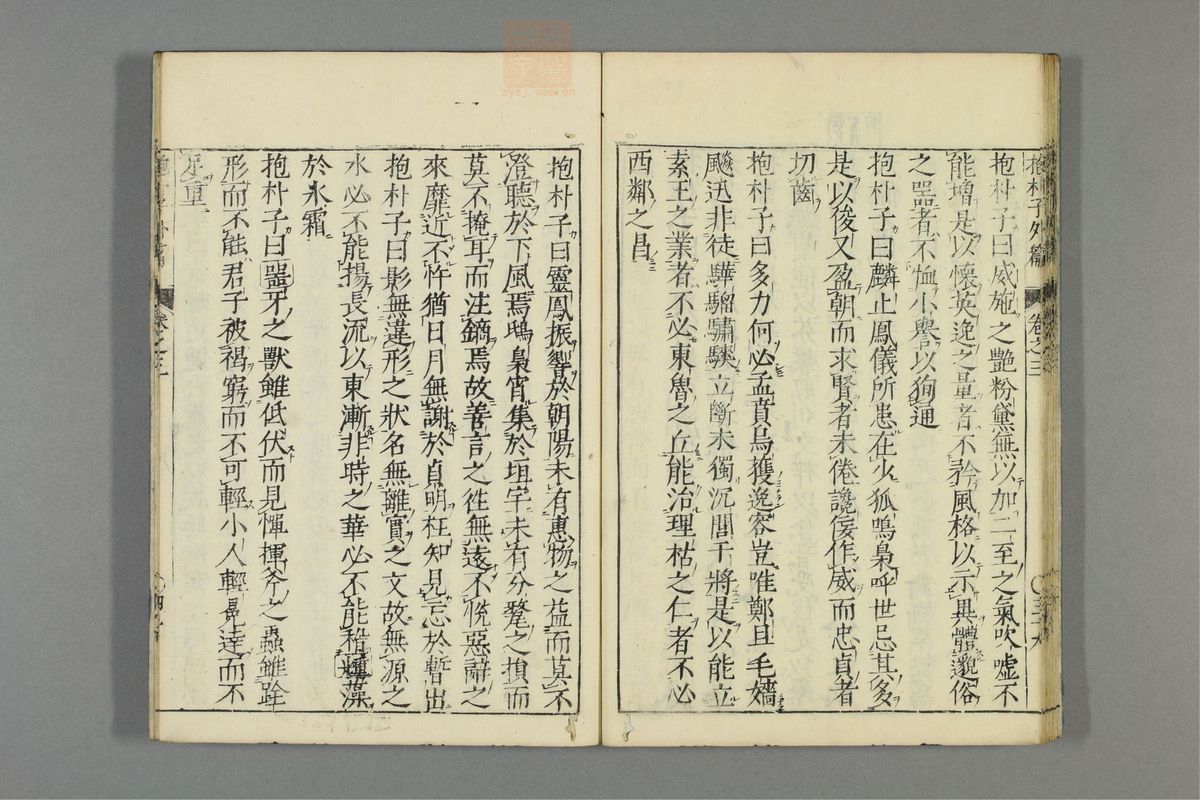 抱朴子外篇 卷之三
抱朴子曰威施之艷粉黛無以加二至之氣吹噓不
能增是以懷英逸之量者不矜風格以示異體邈俗
之器者不恤小譽以狥通
抱朴子曰麟止鳳儀所患在少狐鳴梟呼世忌其多
是以俊乂盈朝而求賢者未倦讒佞作威而忠貞者
切齒
抱朴子曰多力何必孟賁烏獲逸容豈唯鄭旦毛嬙
飈迅非徒驊騮驌驦立斷未獨沉閭干將是以能立
素王之業者不必東魯之丘能治理枯之仁者不必
西鄰之昌
抱朴子曰靈鳳振響於朝陽未有惠物之益而莫不
澄聽於下風焉鴟梟宵集於垣宇未有分釐之損而
莫不掩耳而注鏑焉故善言之徃無遠不恱惡辭之
來靡近不忤猶日月無謝於貞明枉矢見忘於暫出
抱朴子曰影無違形之狀名無離實之文故無源之
水必不能揚長流以東漸非時之華必不能稽輝藻
於氷霜
抱朴子曰噐牙之獸雖低伏而見憚揮斧之蟲雖跧
形而不能君子被褐窮而不可輕小人輕最逹而不
足重